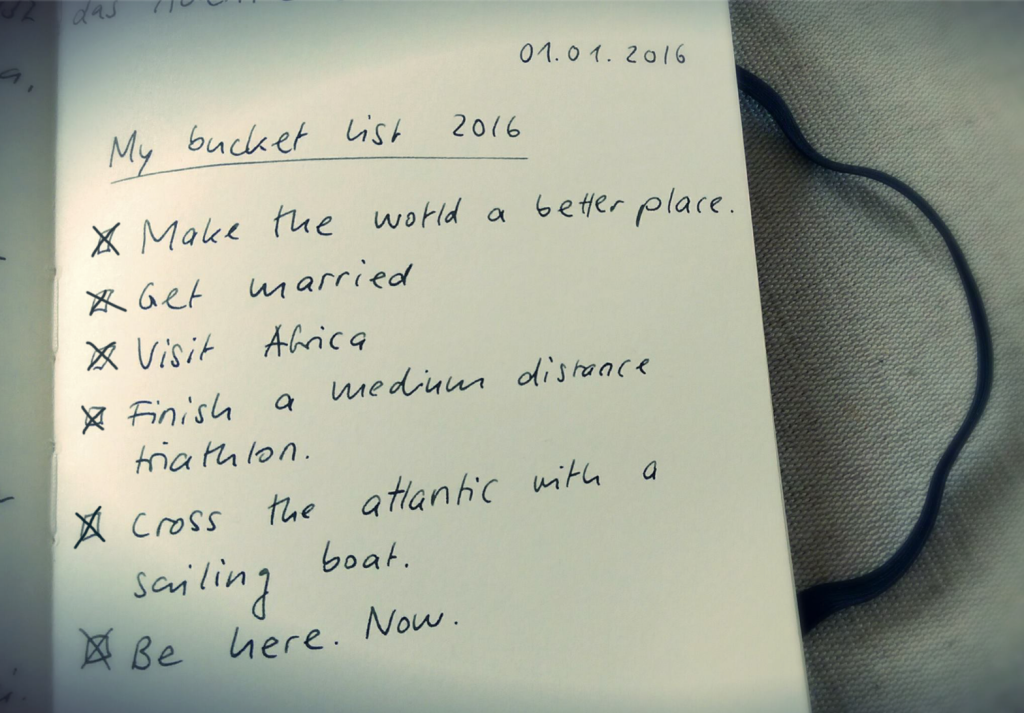 das
01.01.2016
My bucket list 2016
☒ Make the world a better place.
☒ Get married
☒ Visit Africa
☒ Finish a medium distance
triathlon.
☒ Cross the atlantic with a
sailing boat.
☒ Be here. Now.